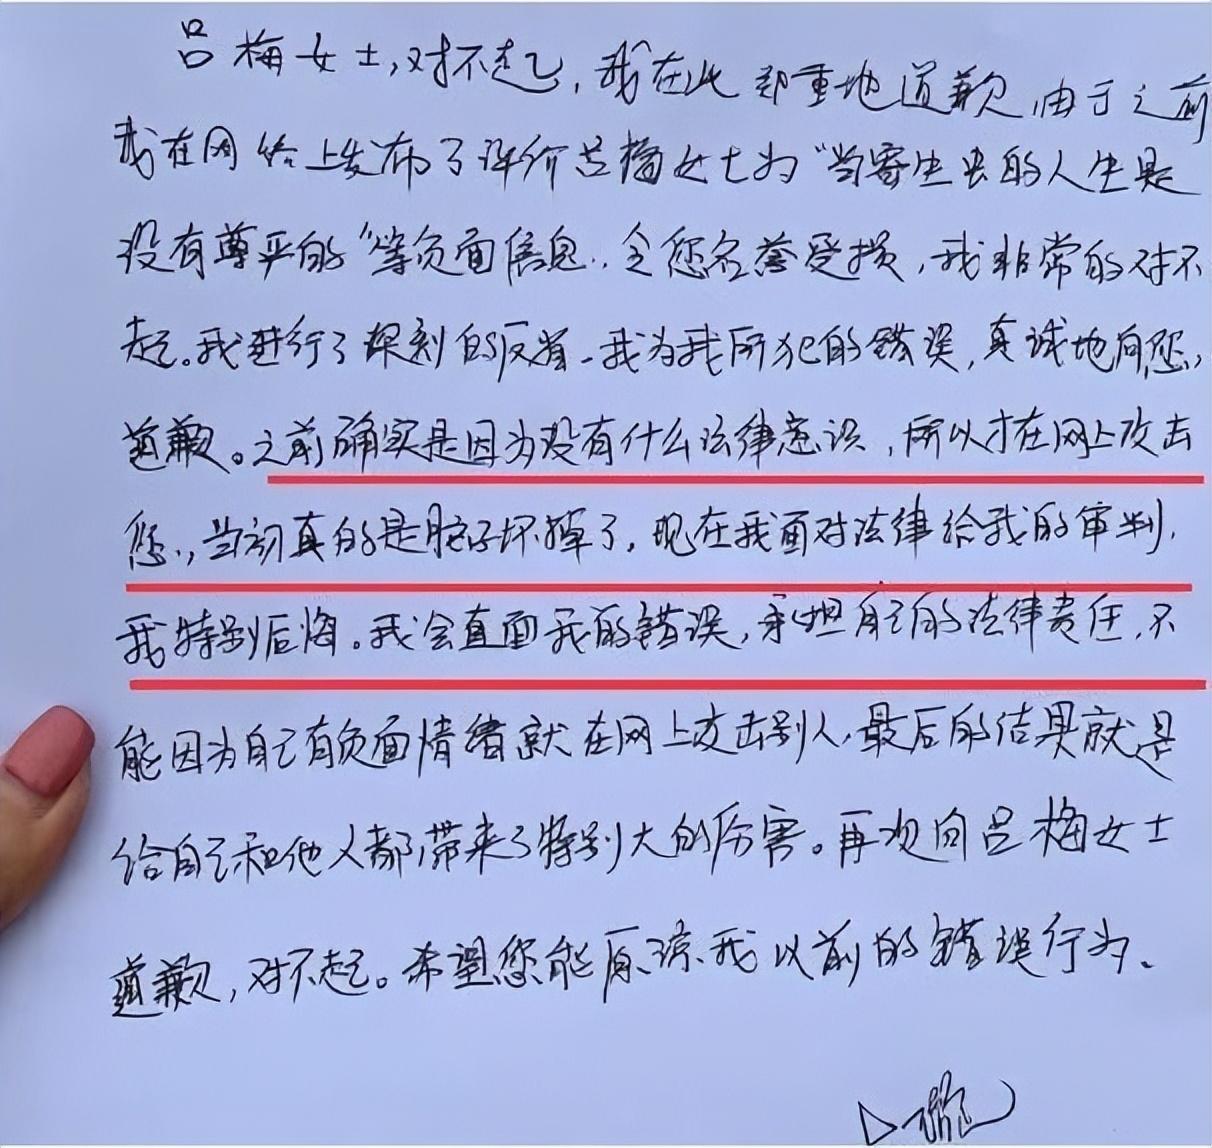 吕梅女士,对不起,我在此郑重地道歉,由于之前
我在网络上发布了评价吕梅女士为"当寄生虫的人生是
没有尊严的"等负面信息,令您名誉受损,我非常的对不
起。我进行了深刻的反省,我为我所犯的错误,真诚地向您,
道歉。之前确实是因为没有什么法律意识,所以才在网上攻击
您,当初真的是脑子坏掉了,现在我面对法律给我的审判,
我特别后悔。我会直面我的错误,承担自己的法律责任,不
能因为自己有负面情绪就在网上攻击别人,最后的结果就是
给自己和他人都带来了特别大的伤害。再次向吕梅女士
道歉,对不起。希望您能原谅我以前的错误行为。